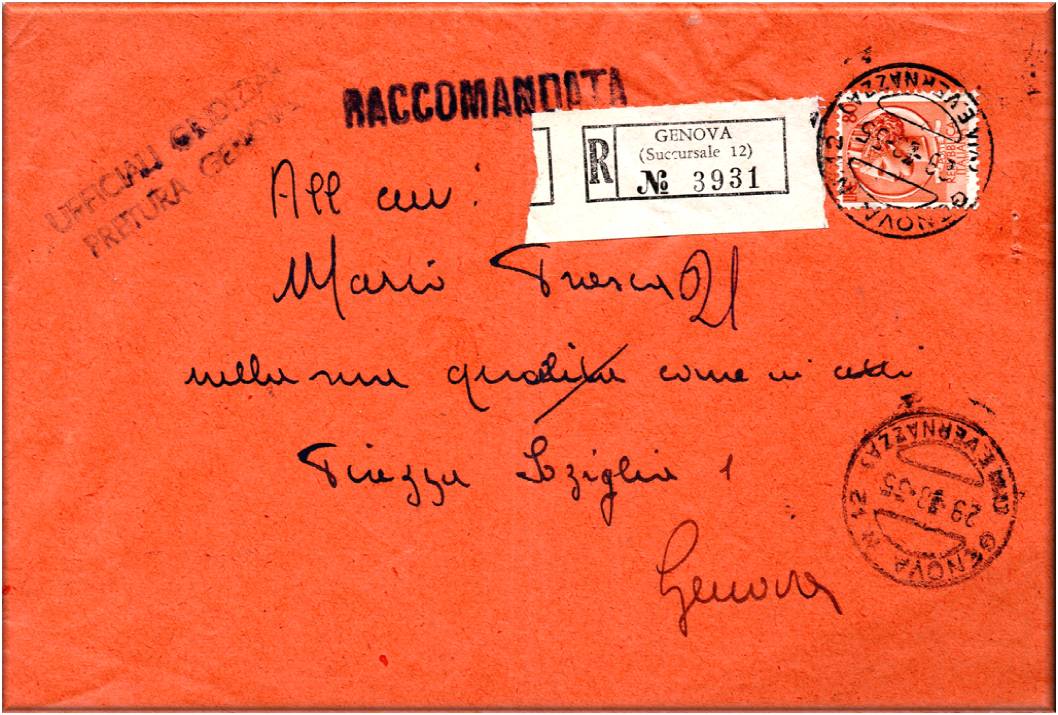 UFFICIALI GIUDIZIARI
PRETURA GENOVA
RACCOMANDATA
R
GENOVA
(Succursale 12)
№ 3931
GENOVA N. 12
(VIA E. VERNAZZA)
All avv.
Mario
nella sua qualità come in atti
Piazza Soziglia 1
Genova
GENOVA N. 12
(VIA E. VERNAZZA)